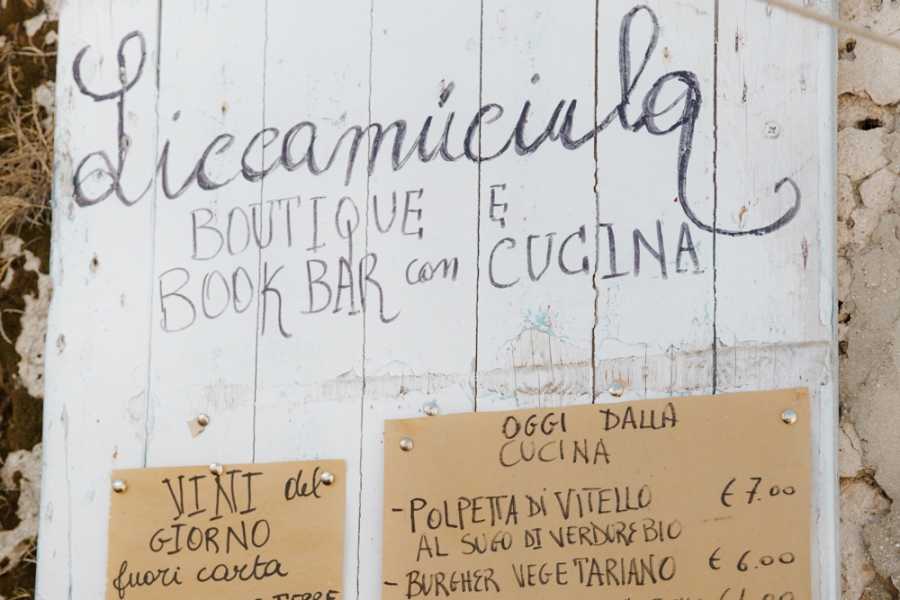 Liccamúciula
BOUTIQUE E
BOOK BAR con CUCINA
OGGI DALLA
CUCINA
- POLPETTA DI VITELLO € 7.00
AL SUGO DI VERDURE BIO
- BURGHER VEGETARIANO € 6.00
VINI del
GIORNO
fuori carta